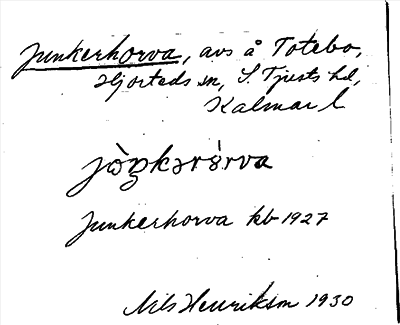 Junkerhorva, avs å Totebo,
Hjorteds sn, S. Tjusts hd,
Kalmar l
Junkerhorva kb 1927
Nils Henrikson 1930